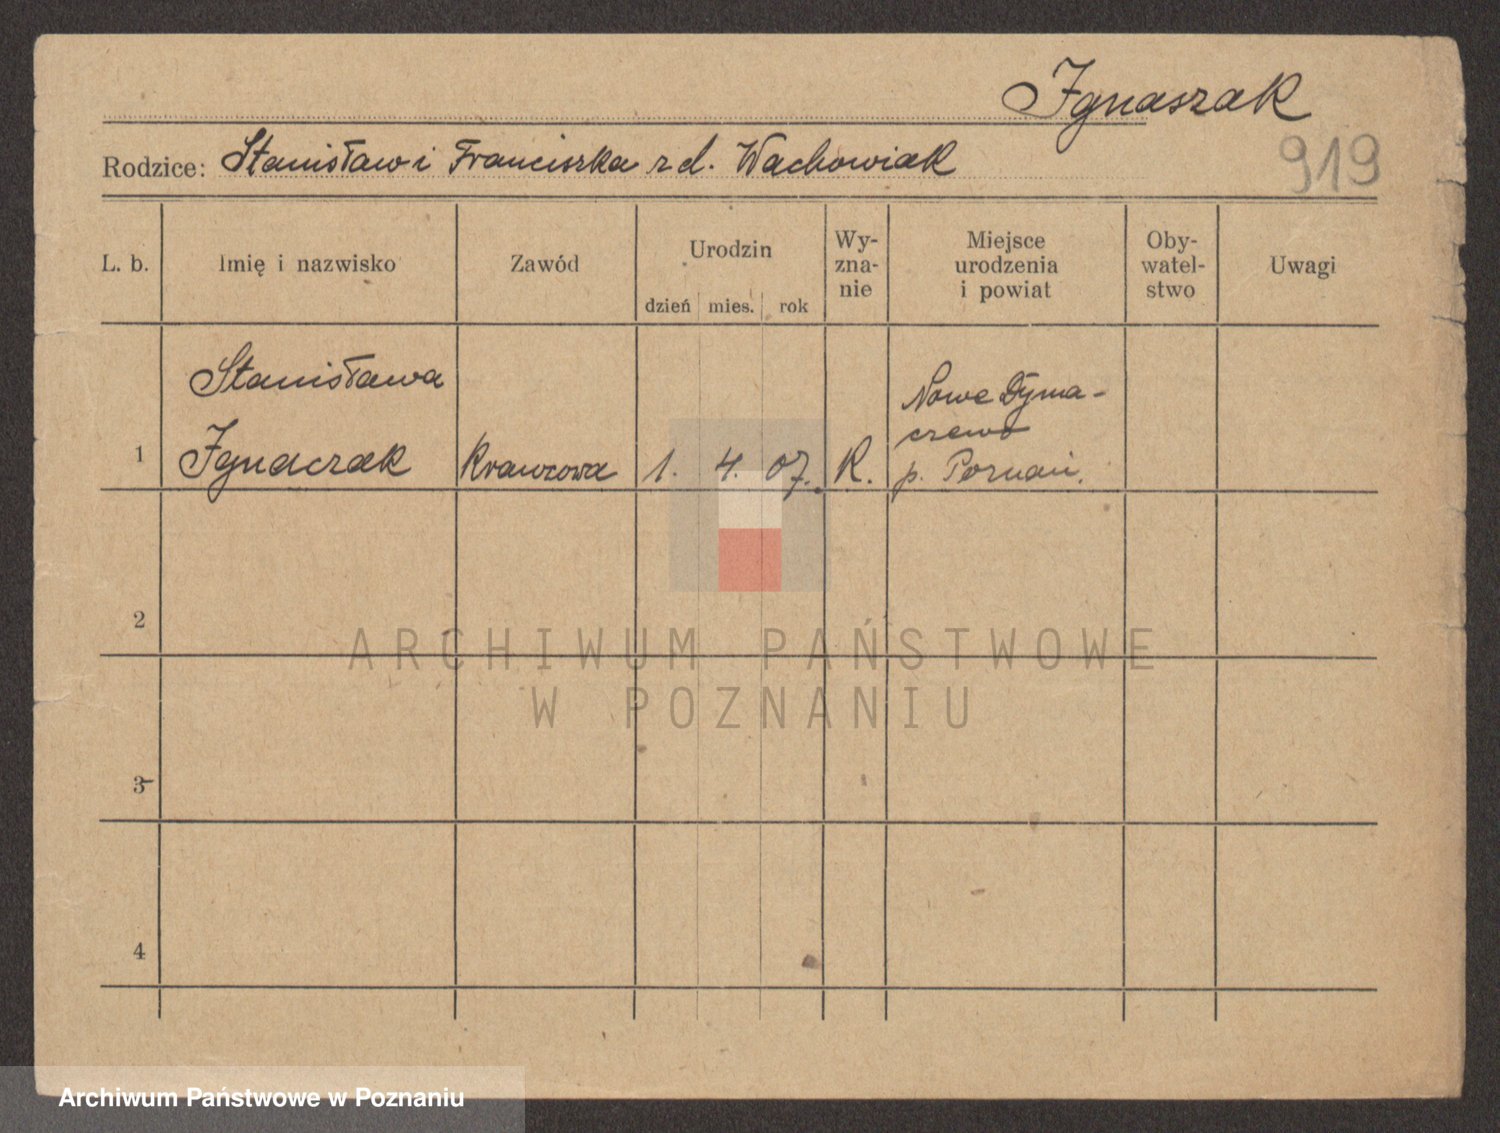 Ignaszak
Rodzice: Stanisław i Franciszka z d. Wachowiak
919
L. b.
Imię i nazwisko
Zawód
Urodzin
dzień mies. rok
Wy-
zna-
nie
Miejsce
urodzenia
i powiat
Oby-
watel-
stwo
Uwagi
1
Stanisława
Ignaczak
Krawcowa
1. 4. 07.
K.
Nowe Dyma-
czewo
p. Poznań.
2
3
4
ARCHIWUM PAŃSTWOWE
W POZNANIU
Archiwum Państwowe w Poznaniu